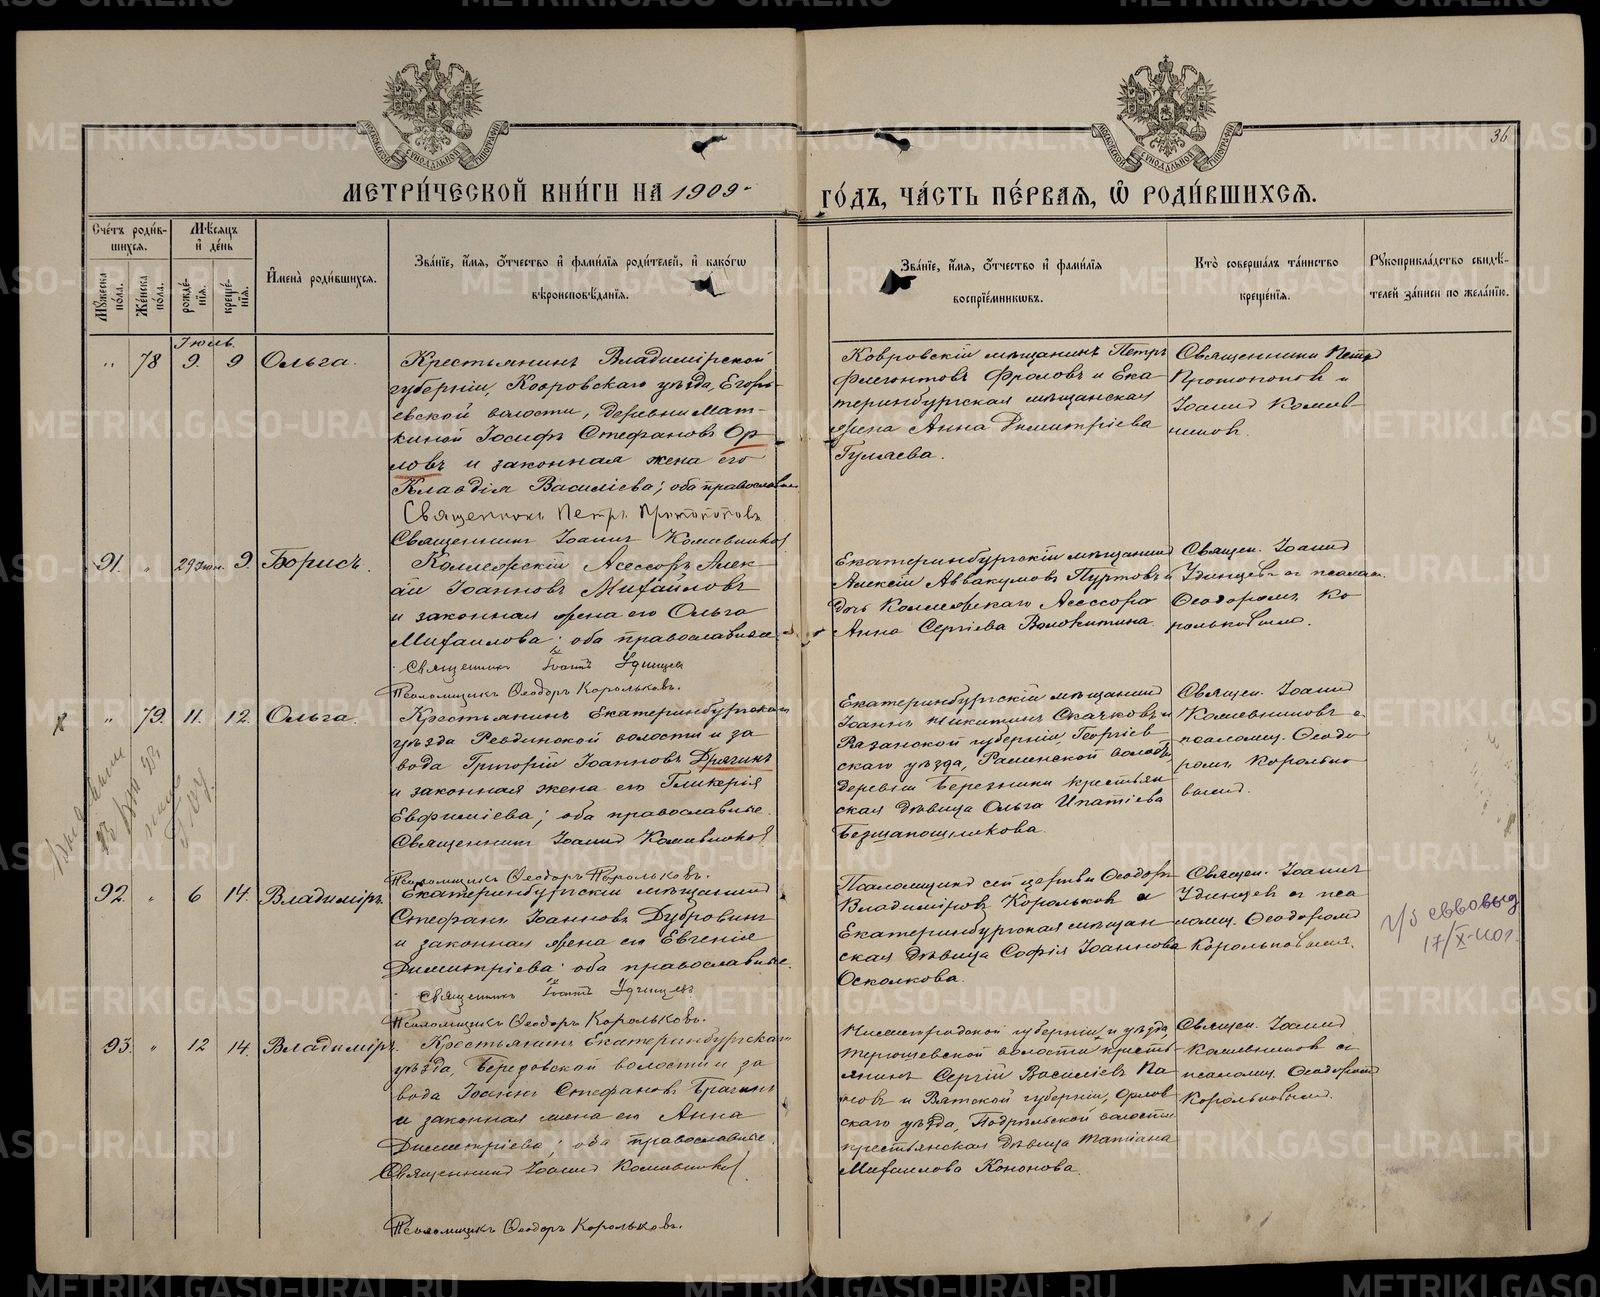 36
МЕТРИ́ЧЕСКОЙ КНИ́ГИ НА 1909 ГО́ДЪ, ЧА́СТЬ ПЕ́РВАЯ, Ѽ РОДИ́ВШИХСЯ.
Сче́тъ роди́в-
шихся.
Мѣ́сяцъ
и҆ де́нь
Мꙋ́жеска
по́ла.
Же́нска
по́ла.
рожде́-
нїя.
креще́-
нїя.
И҆мена̀ роди́вшихся.
Зва́нїе, и҆́мя, ѻ҆́тчество и҆ фами́лїя роди́телей, и҆ како́гѡ
вѣроисповѣ́данїя.
Зва́нїе, и҆́мя, ѻ҆́тчество и҆ фами́лїя
воспрїе́мникѡвъ.
Кто̀ соверша́лъ та́инство
креще́нїя.
Рꙋкоприкла́дство свидѣ́-
телей за́писи по жела́нїю.
Іюль.
" 78 9. 9 Ольга.
Крестьянинъ Владимірской
губерніи, Ковровскаго уѣзда, Егорь-
евской волости, деревни Мат-
киной Іосифъ Стефановъ Ор-
ловъ и законная жена его
Клавдія Василіева; оба православные
Священникъ Петръ Протопоповъ
Священникъ Іоаннъ Кожевниковъ
Ковровскій мѣщанинъ Петръ
Флегонтовъ Фроловъ и Ека-
теринбургская мѣщанская
жена Анна Димитріева
Гуляева.
Священники Петръ
Протопоповъ и
Іоаннъ Кожев-
никовъ.
91. " 29 Іюн. 9. Борисъ.
Коллежскій Асессоръ Алек-
ѣй Іоанновъ Михайловъ
и законная жена его Ольга
Михаилова; оба православные.
Священникъ Іоаннъ Удинцевъ
Псаломщикъ Ѳеодоръ Корольковъ.
Екатеринбургскій мѣщанинъ
Алексій Аввакумовъ Пуртовъ и
дочь Коллежскаго Асессора
Анна Сергіева Волокитина.
Священ. Іоаннъ
Удинцевъ съ псалом.
Ѳеодоромъ Ко
рольковымъ.
" 79. 11. 12. Ольга.
Крестьянинъ Екатеринбургскаго
уѣзда Ревдинской волости и за
вода Григорій Іоанновъ Дрягинъ
и законная жена его Гликерія
Евфиміева; оба православные.
Священникъ Іоаннъ Кожевниковъ
Псаломщикъ Ѳеодоръ Корольковъ.
Екатеринбургскій мѣщанинъ
Іоаннъ Никитинъ Скачковъ и
Рязанской губерніи, Георгіев
скаго уѣзда, Раменской волости,
деревни Березники крестьян
ская дѣвица Ольга Ипатіева
Безшапошникова.
Священ. Іоаннъ
Кожевниковъ съ
псаломщ. Ѳеодо
ромъ Королько
вымъ.
92. " 6 14. Владиміръ
Екатеринбургскій мѣщанинъ
Стефанъ Іоанновъ Дубровинъ
и законная жена его Евгенія
Димитріева; оба православные.
Священникъ Іоаннъ Удинцевъ
Псаломщикъ Ѳеодоръ Корольковъ.
Псаломщикъ сей церкви Ѳеодоръ
Владиміровъ Корольковъ и
Екатеринбургская мѣщан
ская дѣвица Софія Іоаннова
Осколкова.
Священ. Іоаннъ
Удинцевъ съ пса
ломщ. Ѳеодоромъ
Корольковымъ.
93. " 12 14. Владиміръ.
Крестьянинъ Екатеринбургскаго
уѣзда, Березовской волости и за
вода Іоаннъ Стефановъ Брагинъ
и законная жена его Анна
Димитріева; оба православные.
Священникъ Іоаннъ Кожевниковъ
Псаломщикъ Ѳеодоръ Корольковъ.
Нижегородской губерніи и уѣзда,
Терюшевской волости кресть-
янинъ Сергій Василіевъ Па
новъ и Вятской губерніи, Орлов
скаго уѣзда, Подрѣльской волости
крестьянская дѣвица Татіана
Михаилова Кононова.
Священ. Іоаннъ
Кожевниковъ съ
псаломщ. Ѳеодоромъ
Корольковымъ.
METRIKI.GASO-URAL.RU